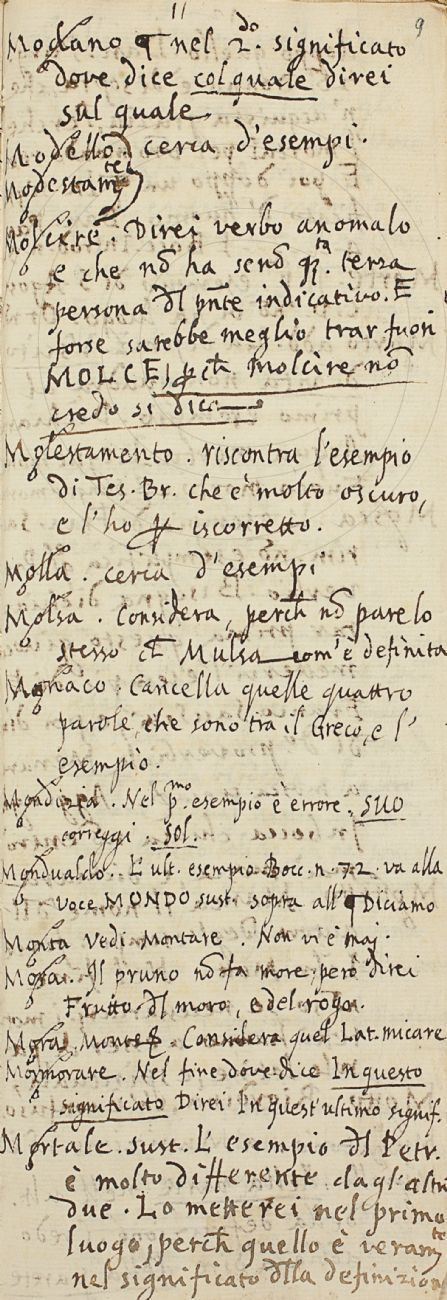 11
9
Modano ¶ nel 2.do significato
dove dice col quale direi
sul quale
Modello } cerca d'esempi.
Modestam.te }
Molcire. Direi verbo anomalo
e che nõ ha senõ q.ta terza
persona dl pñte indicativo. E
forse sarebbe meglio trar fuori
MOLCE, ꝑch̃ molcire nõ
credo si dica
Molestamento. riscontra l'esempio
di Tes. Br. che è molto oscuro,
e l'ho ꝑ iscorretto.
Molla. cerca d'esempi
Molsa. Considera, perch̃ nõ pare lo
stesso ch̃ Mulsa com'è definita
Monaco. Cancella quelle quattro
parole, che sono tra il Greco, e l'
esempio.
Nel p.mo esempio è errore. SUO
correggi. SOL.
Mondualdo. L'ult. esempio Bocc. n. 72. va alla
voce MONDO sust. sopra all'¶ Diciamo
Monta vedi Montare. Non vi è mai.
Mora. Il pruno nõ fa more, però direi
Frutto dl moro, e del rogo.
Considera quel Lat. micare
Mormorare. Nel fine, dove dice In questo
significato Direi In quest'ultimo signif.
Mortale. sust. L'esempio dl Petr.
è molto differente dagl'altri
due. Lo metterei nel primo
luogo, perch̃ quello è veram.te
nel significato dlla definizion